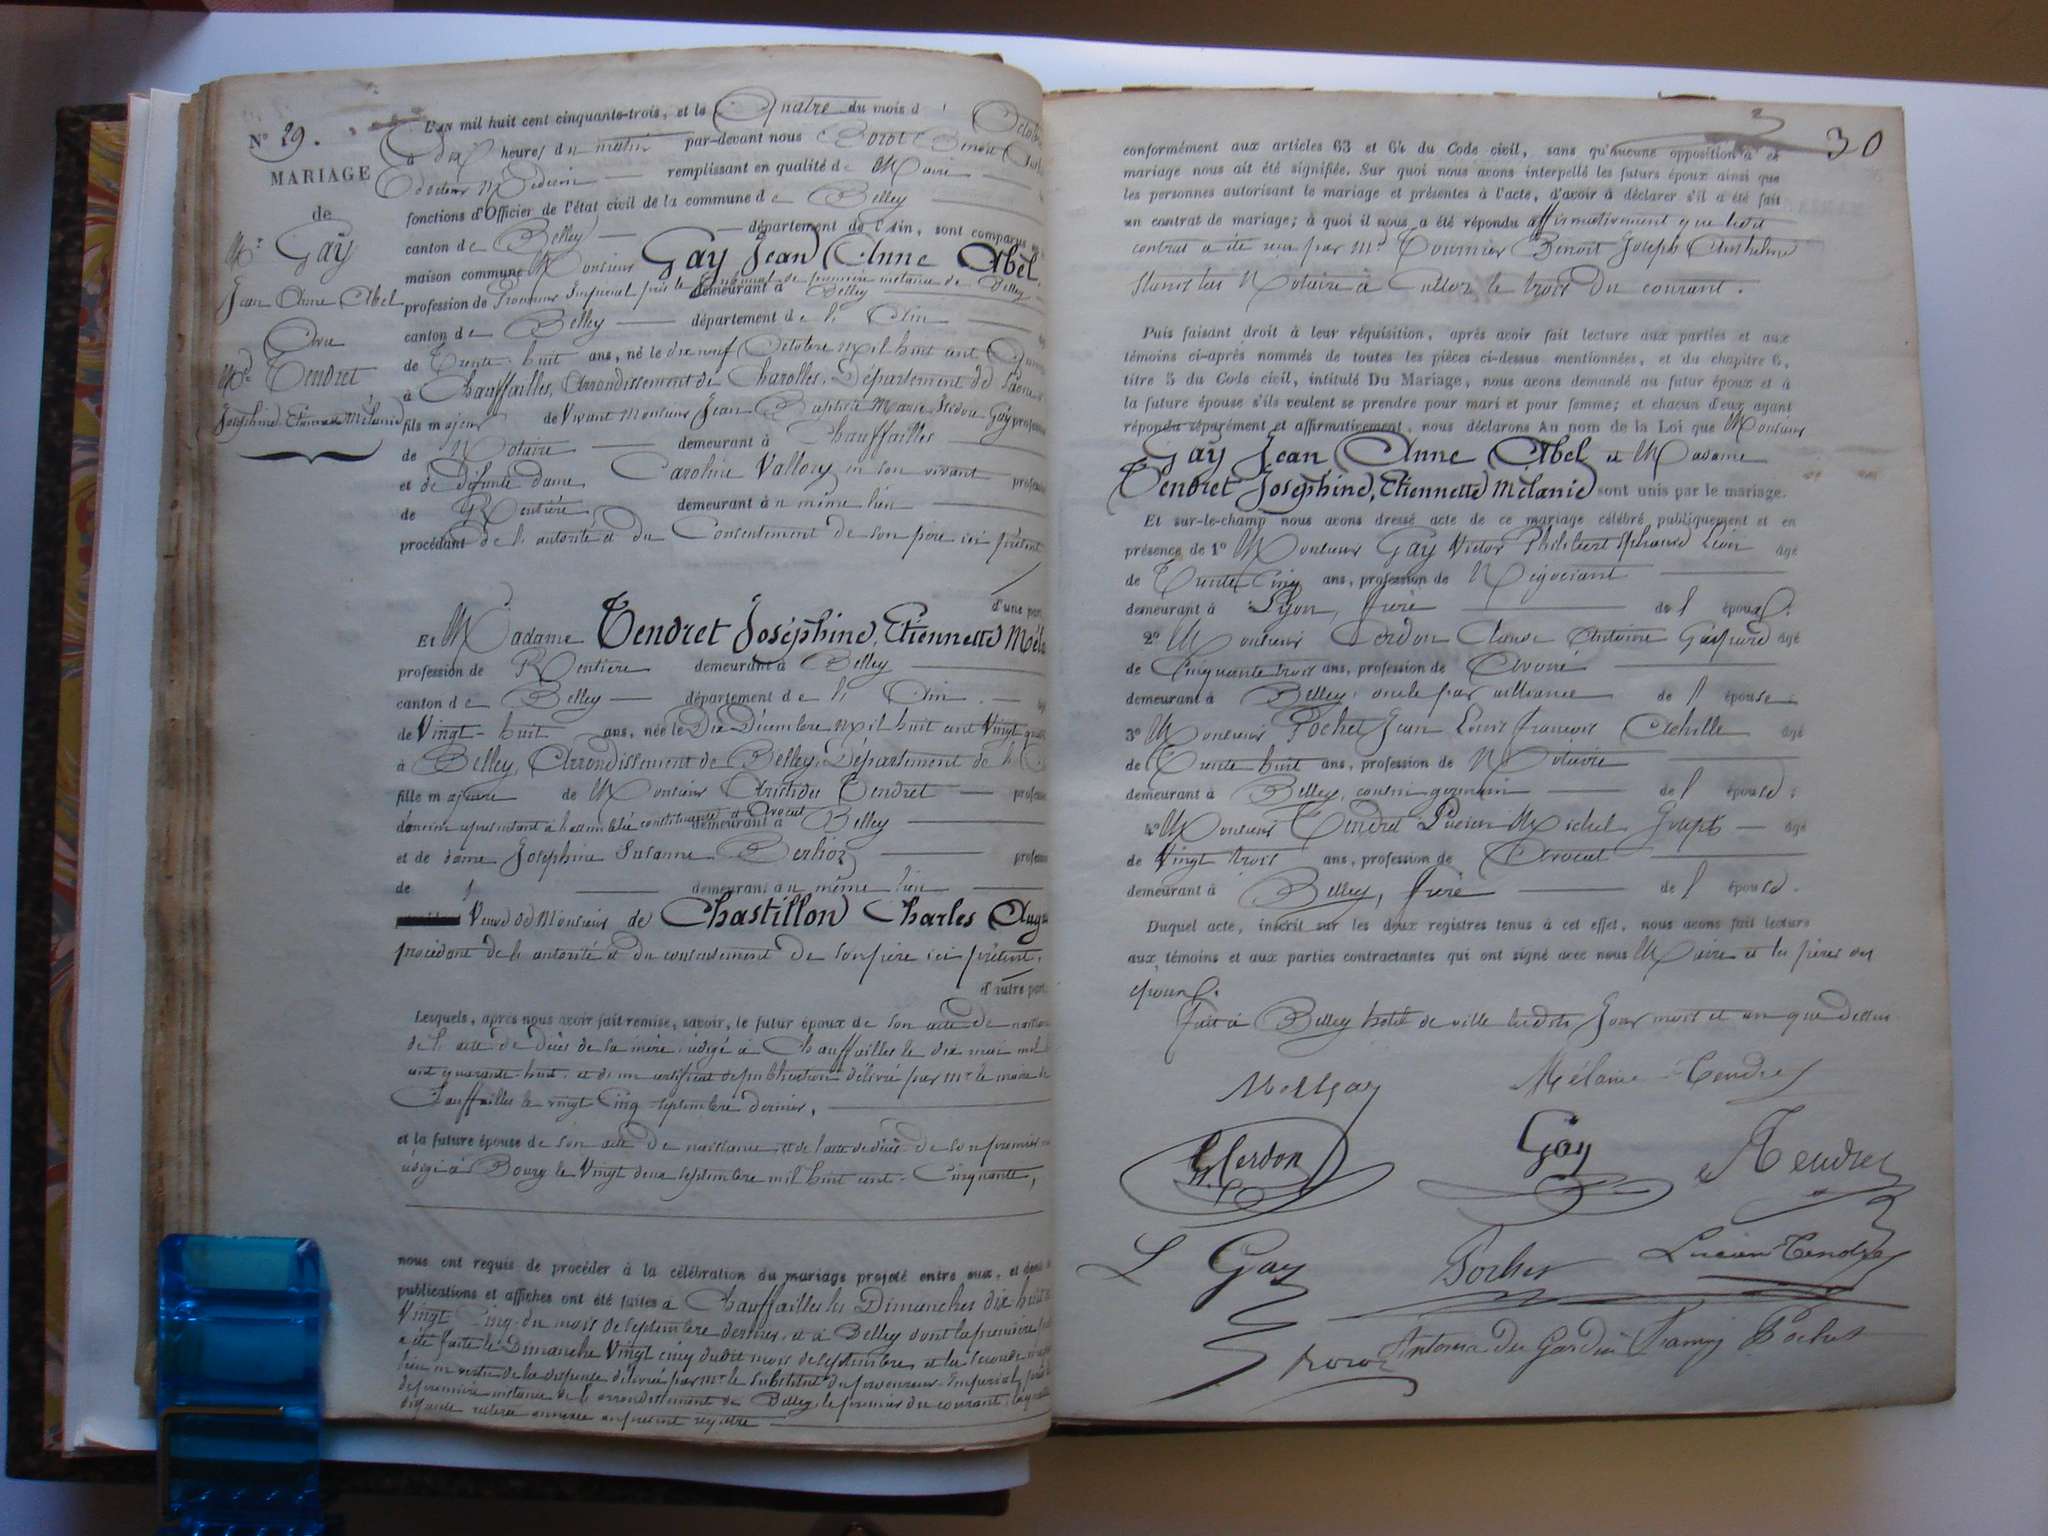 N° 29.
MARIAGE
de
Mr Gay
Jean Anne Abel
Avec
Md Tendret
Joséphine Etiennette Mélanie
L'AN mil huit cent cinquante-trois, et le Quatre du mois d'Octobre
à dix heures du matin par-devant nous Benoit
Docteur Médecin remplissant en qualité de Maire
fonctions d'Officier de l'état civil de la commune de Belley
canton de Belley département de l'Ain, sont comparus en
maison commune Monsieur Gay Jean Anne Abel,
profession de Procureur Impérial près le Tribunal de première instance de Belley demeurant à Belley
canton de Belley département de l'Ain
de Trente-huit ans, né le dix neuf Octobre mil huit cent
à Chauffailles, Arrondissement de Charolles, Département de Saône
fils majeur de Vivant Monsieur Jean Baptiste Marie Isidore Gay profession
de Notaire demeurant à Chauffailles
et de défunte dame Caroline Vallory en son vivant profession
de Rentière demeurant au même lieu
procédant de l'autorité et du Consentement de son père ici présent
d'une part
Et Madame Tendret Joséphine, Etiennette Méla
profession de Rentière demeurant à Belley
canton de Belley département de l'Ain
de Vingt-huit ans, née le Dix Décembre mil huit cent Vingt quatre
à Belley, Arrondissement de Belley, Département de l'
fille majeure de Monsieur Aristides Tendret profession
d'ancien représentant à l'assemblée constituante et Avocat demeurant à Belley
et de dame Joséphine Suzanne Berlioz profession
de demeurant au même lieu
Veuve de Monsieur de Chastillon Charles Augu
procédant de l'autorité et du consentement de son père ici présent.
d'autre part.
Lesquels, après nous avoir fait remise, savoir, le futur époux de son acte de naissance
de l'acte de décès de sa mère, rédigé à Chauffailles le dix mai mil
cent quarante-huit, et d'un certificat de publication délivré par Mr le maire de
Chauffailles le vingt Cinq septembre dernier,
et la future épouse de son acte de naissance et de l'acte de décès de son premier
rédigé à Bourg le Vingt deux septembre mil huit cent Cinquante,
nous ont requis de procéder à la célébration du mariage projeté entre eux, et dont les
publications et affiches ont été faites à Chauffailles les Dimanches dix huit et
Vingt Cinq du mois de septembre dernier, et à Belley dont la première
a été faite le Dimanche Vingt cinq dudit mois de septembre et la seconde
lieu en vertu de la dispense délivrée par Mr le substitut du procureur Impérial près le
de première instance de l'arrondissement de Belley, le premier du courant, laquelle
dispense restera annexée au présent registre
30
conformément aux articles 63 et 64 du Code civil, sans qu'aucune opposition à ce
mariage nous ait été signifiée. Sur quoi nous avons interpellé les futurs époux ainsi que
les personnes autorisant le mariage et présentes à l'acte, d'avoir à déclarer s'il a été fait
un contrat de mariage; à quoi il nous a été répondu affirmativement que ledit
contrat a été reçu par Me Tournier Benoit Joseph Anthelme
Stanislas Notaire à Culloz le trois du courant.
Puis faisant droit à leur réquisition, après avoir fait lecture aux parties et aux
témoins ci-après nommés de toutes les pièces ci-dessus mentionnées, et du chapitre 6,
titre 5 du Code civil, intitulé Du Mariage, nous avons demandé au futur époux et à
la future épouse s'ils veulent se prendre pour mari et pour femme; et chacun d'eux ayant
répondu séparément et affirmativement, nous déclarons Au nom de la Loi que Monsieur
Gay Jean Anne Abel et Madame
Tendret Joséphine, Etiennette Mélanie sont unis par le mariage.
Et sur-le-champ nous avons dressé acte de ce mariage célébré publiquement et en
présence de 1° Monsieur Gay Victor Philibert Léon âgé
de Trente Cinq ans, profession de Négociant
demeurant à Lyon, frère de l'époux.
2° Monsieur Cerdon Antoine Gaspard âgé
de Cinquante trois ans, profession de Avoué
demeurant à Belley, oncle par alliance de l'épouse.
3° Monsieur Pochet Jean Louis François Achille âgé
de Trente huit ans, profession de Notaire
demeurant à Belley, cousin germain de l'épouse.
4° Monsieur Tendret Lucien Michel Joseph âgé
de Vingt trois ans, profession de Avocat
demeurant à Belley, frère de l'épouse.
Duquel acte, inscrit sur les deux registres tenus à cet effet, nous avons fait lecture
aux témoins et aux parties contractantes qui ont signé avec nous Maire et les pères des
époux.
Fait à Belley hotel de ville lesdits Jour mois et an que dessus
Mélanie Tendret
Cerdon Gay A Tendret
L Gay Pochet Lucien Tendret
Fanny Pochet